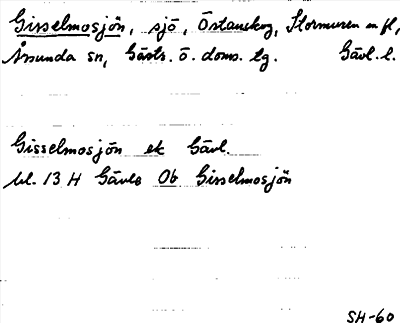 Gisselmosjön, sjö, Östanskog, Stormuren m fl,
Årsunda sn, Gästr. ö. doms. lg. Gävl. l.
Gisselmosjön ek Gävl.
bl. 13 H Gävle Ob Gisselmosjön
SH-60